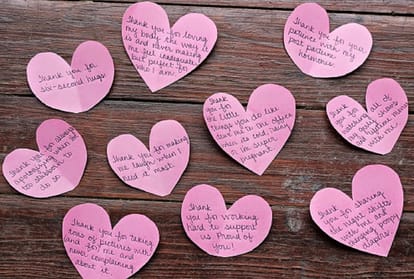 Thank you for loving
my body the way it
is and never making
me feel inadequate
but perfect for
who I am.
Thank you for your
patience with my
post partum
hormones.
Thank you for
six-second hugs
Thank you
for the little
things you do like
drive me to the office
when its cold, rainy
or im super
pregnant.
Thank you for
watching all of
my
shows
and
movies
with me
Thank you for always
apologizing when im
too stubborn to
do so
Thank you for making
me laugh when I
need it most.
Thank
you for working
hard to support
us. Proud of
you!
Thank you for sharing
the night shifts
with me and
changing poopy
diapers
Thank you for taking
tons of pictures with
(and for) me and
never complaining
about it.